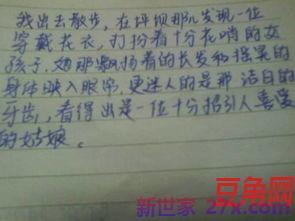 我出去散步，在坪坝那儿发现一位
穿戴花衣，打扮着十分花哨的女
孩子，她那飘扬着的长发和强美的
身体映入眼帘，更迷人的是那洁白的
牙齿，看得出是一位十分招引人喜爱
的姑娘。
豆角网
新世家 27x.com